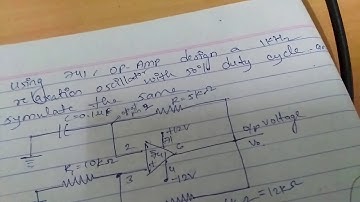 Using 741 OP-AMP design a 1KHz
relaxation oscillator with 50% duty cycle.
symulate the same.
C=0.1μF
R=5kΩ
+12V
7
2
6
O/P voltage
Vo
741
R₁=10kΩ
3
4
-12V
=12kΩ